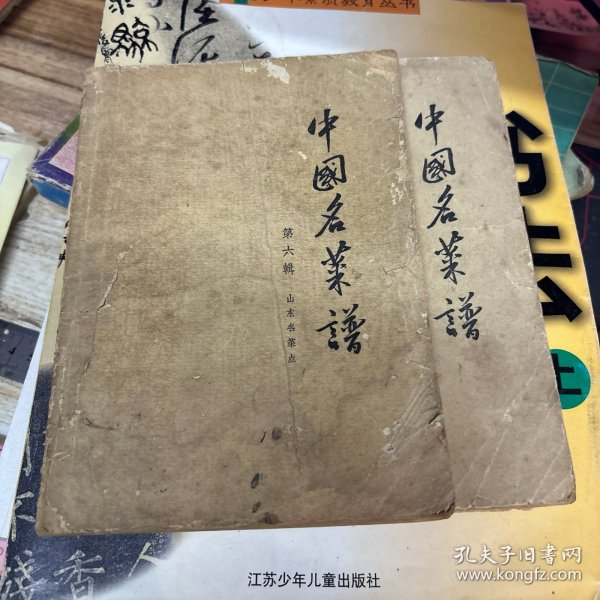 素质教育丛书
中國名菜譜
第六輯
山东名菜点
中國名菜譜
上
香
人
江苏少年儿童出版社
孔夫子旧书网
www.kongfz.com